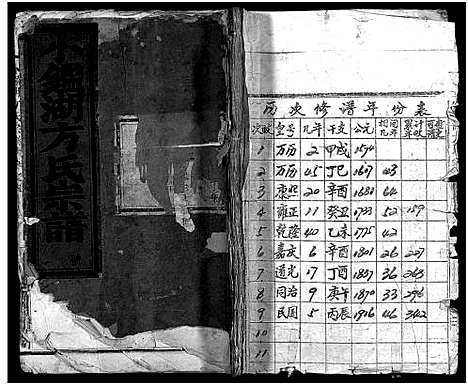 鑑湖方氏宗譜
历次修谱年份表
次数 年号 几年 干支 公元 相间几年 累计年数
1 万历 2 甲戌 1574
2 万历 45 丁巳 1617 43
3 康熙 20 辛酉 1681 64
4 雍正 11 癸丑 1733 52 159
5 乾隆 40 乙未 1775 42
6 嘉庆 6 辛酉 1801 26 227
7 道光 17 丁酉 1837 36 263
8 同治 9 庚午 1870 33 296
9 民国 5 丙辰 1916 46 342
10
11